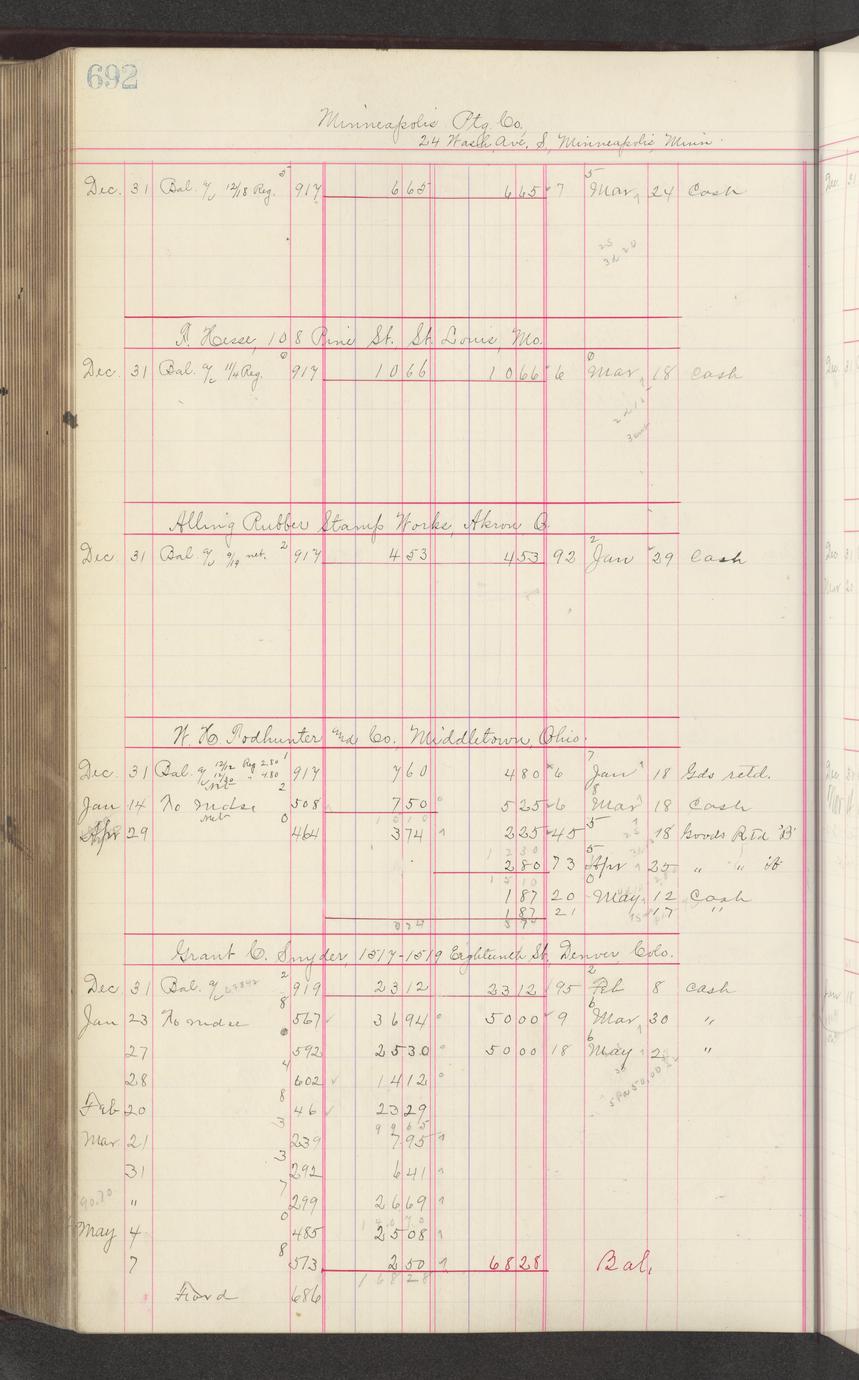 692
Minneapolis Ptg. Co.
24 Wash. Ave. S, Minneapolis, Minn.
Dec. 31 Bal. a/c 12/18 Reg. 5 917 6 65 6 65 7 5 Mar 24 Cash
Hesse, 108 Pine St. St. Louis, Mo.
Dec. 31 Bal. a/c 11/4 Reg. 0 917 10 66 10 66 6 0 Mar 18 Cash
Alling Rubber Stamp Works, Akron O.
Dec 31 Bal. a/c 9/19 net. 2 917 4 53 4 53 92 2 Jan 29 Cash
W. H. Todhunter and Co., Middletown, Ohio.
Dec. 31 Bal. a/c 12/12 Reg 2.80 1 917 7 60 4 80 6 7 Jan 18 Gds retd.
12/30 " 4.80
Jan 14 To Mdse net 2 508 7 50 5 25 6 8 Mar 18 Cash
Apr 29 net 0 464 3 74 2 25 45 5 18 Goods Rtd "B"
2 80 73 5 Apr 25 " " "B"
1 87 20 0 May 12 Cash
1 87 21 17 "
Grant C. Snyder, 1517-1519 Eighteenth St, Denver, Colo.
Dec 31 Bal. a/c 2 919 23 12 23 12 95 2 Feb 8 Cash
Jan 23 To mdse 8 567 36 94 50 00 9 6 Mar 30 "
27 592 25 30 50 00 18 6 May 2 "
28 4 602 14 12
Feb 20 8 46 23 29
99 65
Mar 21 3 239 7 95
31 3 292 6 41
90.70 " 7 299 26 69
140 70
May 4 0 485 25 08
7 8 573 2 50 68 28 Bal.
168 28
Ford 686